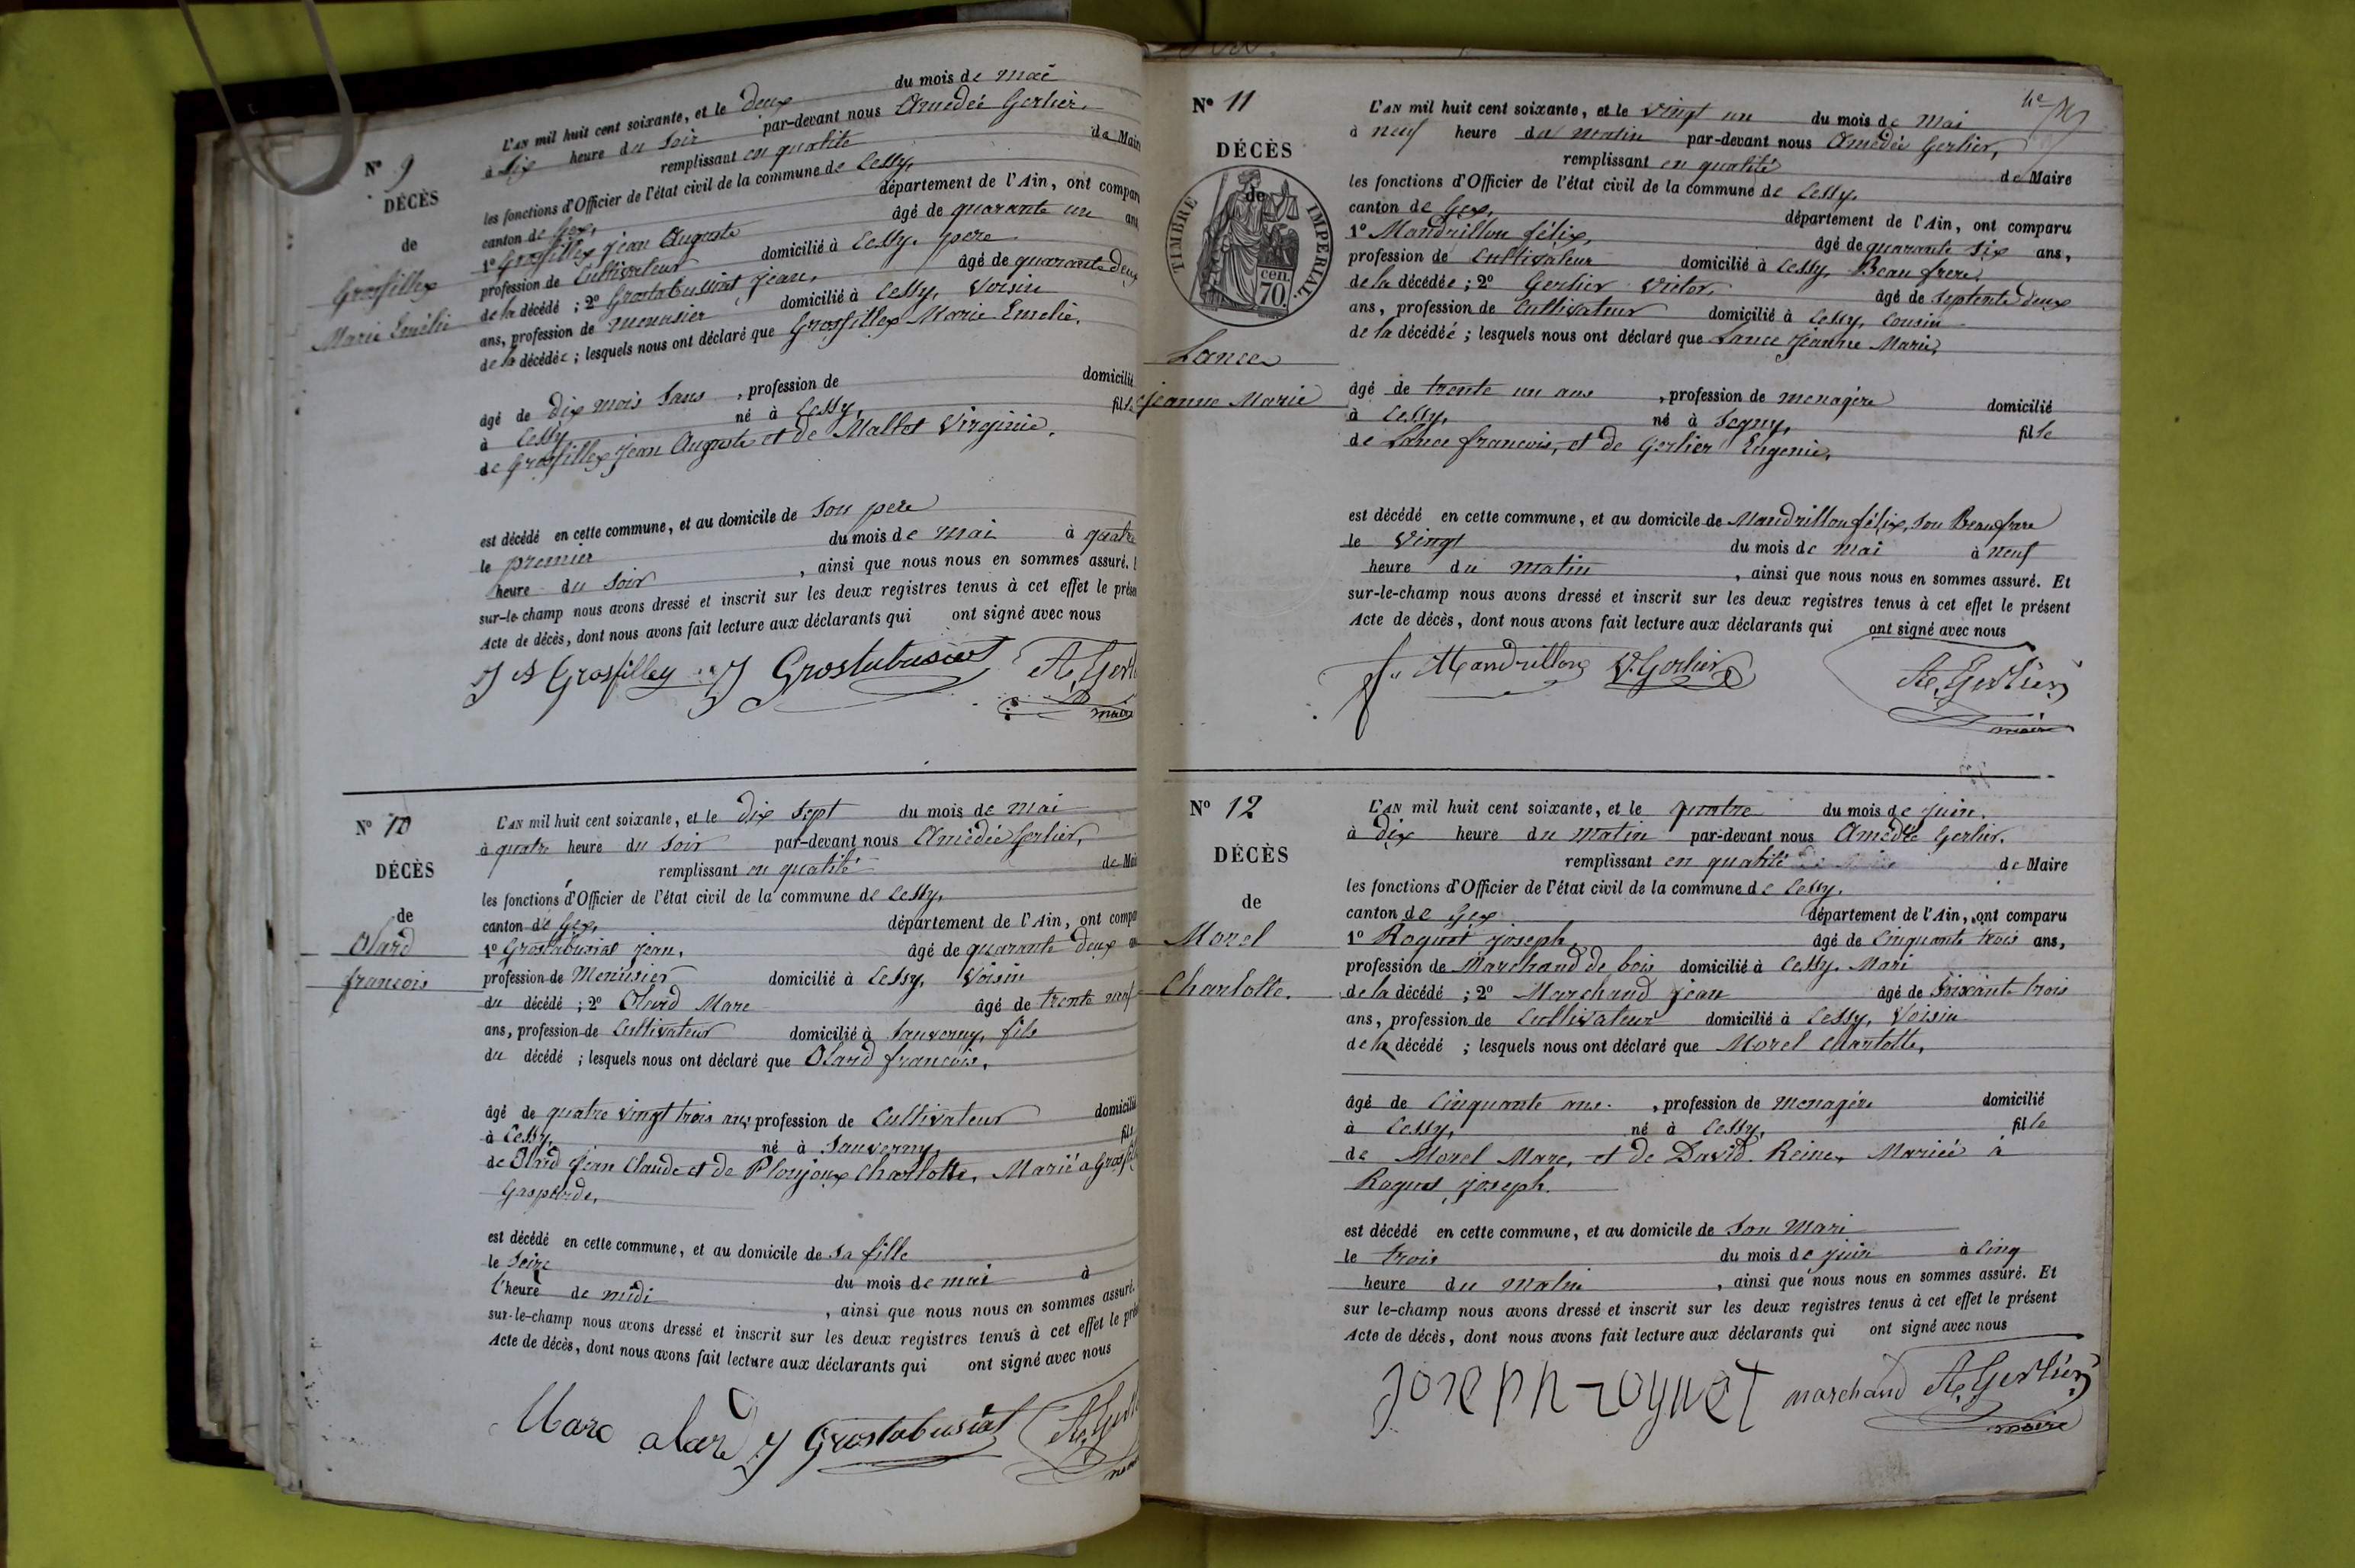 N° 9
DÉCÈS
de
Grosfilley
Marie Emélie
L'AN mil huit cent soixante, et le deux du mois de mai
à six heure du soir par-devant nous Amédée Gerlier,
remplissant en qualité de Maire
les fonctions d'Officier de l'état civil de la commune de Cessy,
canton de Gex, département de l'Ain, ont compar
1° Grosfilley jean Auguste âgé de quarante un ans
profession de Cultivateur domicilié à Cessy. pere
de la décédé ; 2° Grostabussiat jean, âgé de quarante deux
ans, profession de menusier domicilié à Cessy, Voisin
de la décédée ; lesquels nous ont déclaré que Grosfilley Marie Emelie,
âgé de dix mois Sans , profession de domicilié
à Cessy né à Cessy, fille
de Grosfilley jean Auguste et de Mallet Virginie.
est décédé en cette commune, et au domicile de Son pere
le premier du mois de mai à quatre
heure du Soir , ainsi que nous nous en sommes assuré.
sur-le-champ nous avons dressé et inscrit sur les deux registres tenus à cet effet le présen
Acte de décès, dont nous avons fait lecture aux déclarants qui ont signé avec nous
J A Grosfilley J Grostabussiat A. Gerl
maire
N° 10
DÉCÈS
de
Olard
francois
L'AN mil huit cent soixante, et le dix sept du mois de mai
à quatre heure du soir par-devant nous Amédée Gerlier,
remplissant en qualité de Mai
les fonctions d'Officier de l'état civil de la commune de Cessy,
canton de Gex, département de l'Ain, ont compa
1° Grostabusiat jean, âgé de quarante deux
profession de Menusier domicilié à Cessy, Voisin
du décédé ; 2° Olard Marc âgé de trente neuf
ans, profession de Cultivateur domicilié à Sauverny, fils
du décédé ; lesquels nous ont déclaré que Olard francois,
âgé de quatre vingt trois ans, profession de Cultivateur domicilié
à Cessy, né à Sauverny, fils
de Olard jean Claude et de Ploujoux Charlotte, Marié a Grosfil
Gasparde,
est décédé en cette commune, et au domicile de Sa fille
le Seize du mois de mai à
l'heure de midi , ainsi que nous nous en sommes assuré.
sur-le-champ nous avons dressé et inscrit sur les deux registres tenus à cet effet le pré
Acte de décès, dont nous avons fait lecture aux déclarants qui ont signé avec nous
Marc olard J Grostabusiat A. Gerl
N° 11
DÉCÈS
de
TIMBRE IMPERIAL.
70 cen.
Lance
jeanne Marie
L'AN mil huit cent soixante, et le vingt un du mois de Mai
à neuf heure du matin par-devant nous Amédée Gerlier,
remplissant en qualité de Maire
les fonctions d'Officier de l'état civil de la commune de Cessy,
canton de Gex, département de l'Ain, ont comparu
1° Mandrillon félix, âgé de quarante six ans,
profession de Cultivateur domicilié à Cessy, Beau frere
de la décédée ; 2° Gerlier Victor, âgé de septente deux
ans, profession de Cultivateur domicilié à Cessy, Cousin
de la décédée ; lesquels nous ont déclaré que Lance jeanne Marie,
âgé de trente un ans , profession de menagère domicilié
à Cessy, né à Segny, fille
de Lance francois, et de Gerlier Eugenie,
est décédé en cette commune, et au domicile de Mandrillon félix, Son Beau frere
le vingt du mois de mai à neuf
heure du matin , ainsi que nous nous en sommes assuré. Et
sur-le-champ nous avons dressé et inscrit sur les deux registres tenus à cet effet le présent
Acte de décès, dont nous avons fait lecture aux déclarants qui ont signé avec nous
f. Mandrillon V. Gerlier A. Gerlier
maire
N° 12
DÉCÈS
de
Morel
Charlotte.
L'AN mil huit cent soixante, et le quatre du mois de juin.
à dix heure du matin par-devant nous Amédée Gerlier.
remplissant en qualité de Maire
les fonctions d'Officier de l'état civil de la commune de Cessy.
canton de Gex département de l'Ain, ont comparu
1° Roguet joseph, âgé de Cinquante trois ans,
profession de Marchand de bois domicilié à Cessy. Mari
de la décédé ; 2° Marchand jean âgé de Soixante trois
ans, profession de Cultivateur domicilié à Cessy, Voisin
de la décédé ; lesquels nous ont déclaré que Morel Charlotte,
âgé de Cinquante ans. , profession de menagère domicilié
à Cessy, né à Cessy, fille
de Morel Marc, et de David Reine, Mariée à
Roguet joseph.
est décédé en cette commune, et au domicile de Son Mari
le trois du mois de juin à Cinq
heure du Matin , ainsi que nous nous en sommes assuré. Et
sur le-champ nous avons dressé et inscrit sur les deux registres tenus à cet effet le présent
Acte de décès, dont nous avons fait lecture aux déclarants qui ont signé avec nous
joseph roguet marchand A. Gerlier
maire